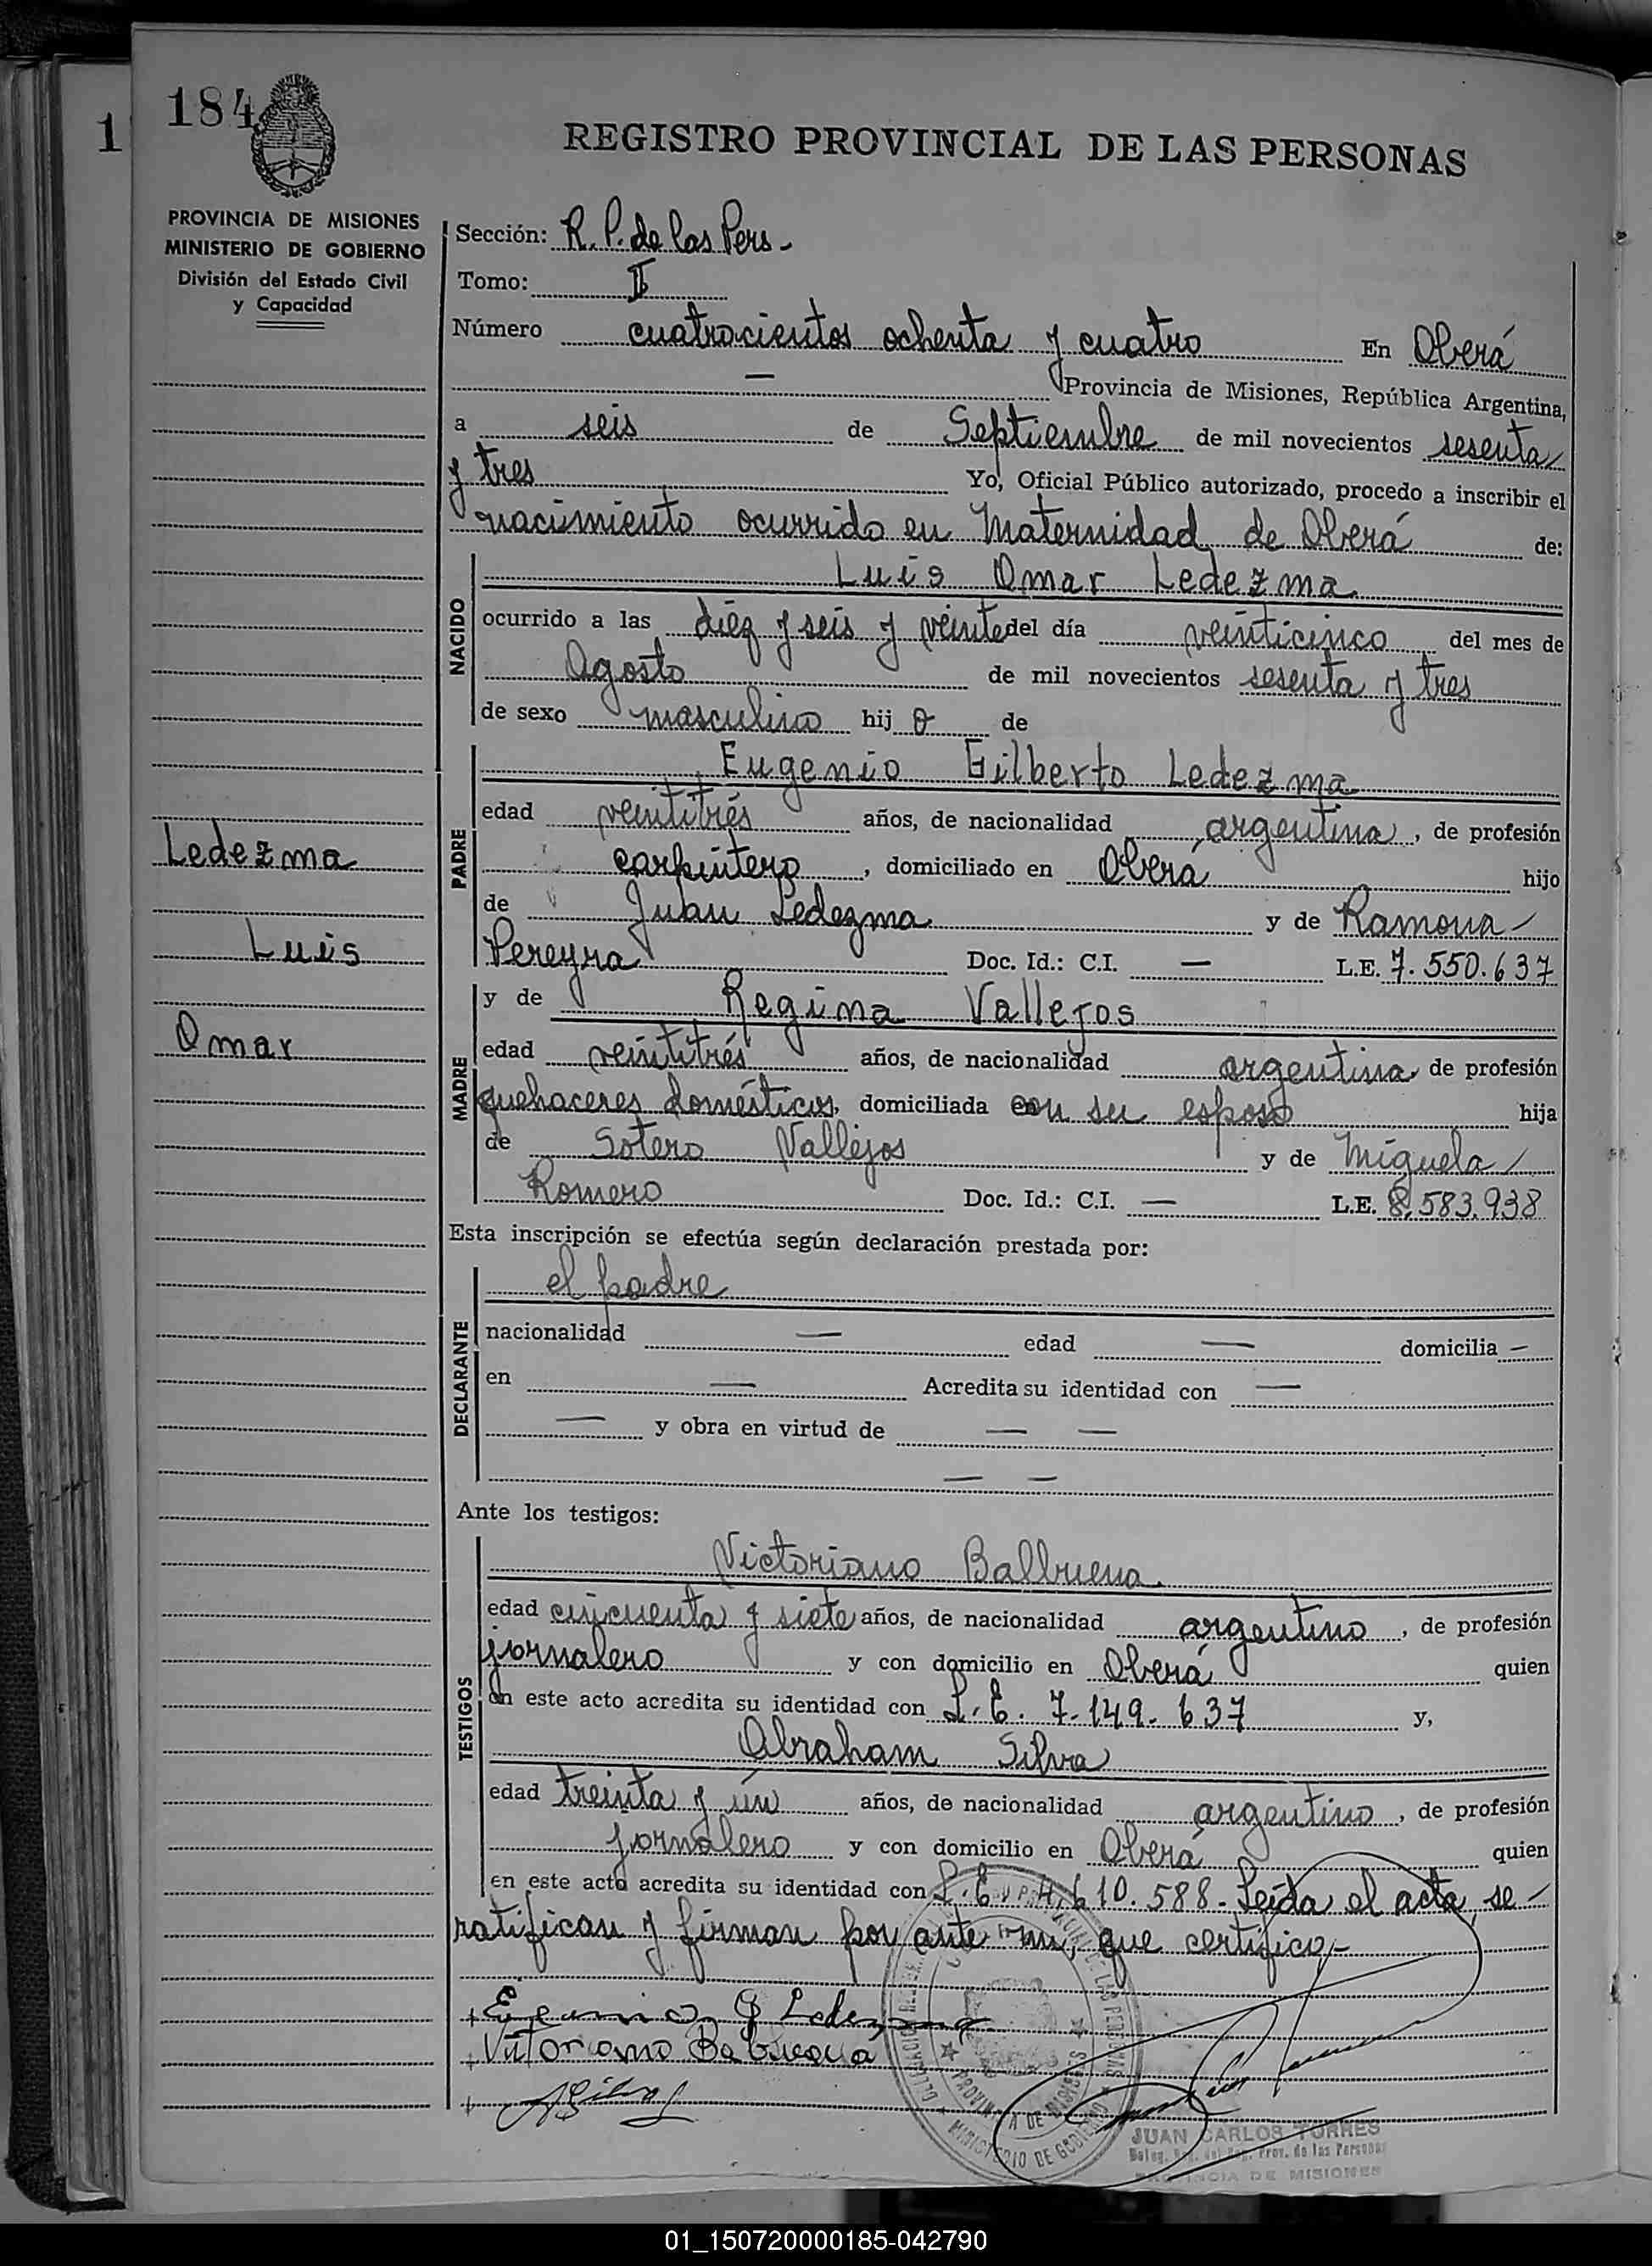 184
1
REGISTRO PROVINCIAL DE LAS PERSONAS
PROVINCIA DE MISIONES
MINISTERIO DE GOBIERNO
División del Estado Civil
y Capacidad
Ledezma
Luis
Omar
Sección: R. P. de las Pers -
Tomo: II
Número cuatrocientos ochenta y cuatro En Oberá
— Provincia de Misiones, República Argentina,
a seis de Septiembre de mil novecientos sesenta
y tres Yo, Oficial Público autorizado, procedo a inscribir el
nacimiento ocurrido en Maternidad de Oberá de:
NACIDO
Luis Omar Ledezma
ocurrido a las diez y seis y veinte del día veinticinco del mes de
Agosto de mil novecientos sesenta y tres
de sexo masculino hij o de
PADRE
Eugenio Gilberto Ledezma
edad veintitrés años, de nacionalidad argentina, de profesión
carpintero, domiciliado en Oberá hijo
de Juan Ledezma y de Ramona -
Pereyra Doc. Id.: C.I. — L.E. 7.550.637
MADRE
y de Regina Vallejos
edad veintitrés años, de nacionalidad argentina de profesión
quehaceres domésticos, domiciliada con su esposo hija
de Sotero Vallejos y de Miguela
Romero Doc. Id.: C.I. — L.E. 8.583.938
Esta inscripción se efectúa según declaración prestada por:
DECLARANTE
el padre
nacionalidad — edad — domicilia —
en — Acredita su identidad con —
— y obra en virtud de — —
— —
Ante los testigos:
TESTIGOS
Victoriano Balbuena
edad cincuenta y siete años, de nacionalidad argentino, de profesión
jornalero y con domicilio en Oberá quien
en este acto acredita su identidad con L. E. 7.149.637 y,
Abraham Silva
edad treinta y ún años, de nacionalidad argentino, de profesión
jornalero y con domicilio en Oberá quien
en este acto acredita su identidad con L. E. 610.588 - Leída el acta, se -
ratifican y firman por ante mi, que certifico,-
+ G Ledezma
+ Balbuena
+ ASilva
PROVINCIA DE MISIONES
MINISTERIO DE GOBIERNO
JUAN CARLOS TORRES
Prov. de las Personas
PROVINCIA DE MISIONES
01_150720000185-042790